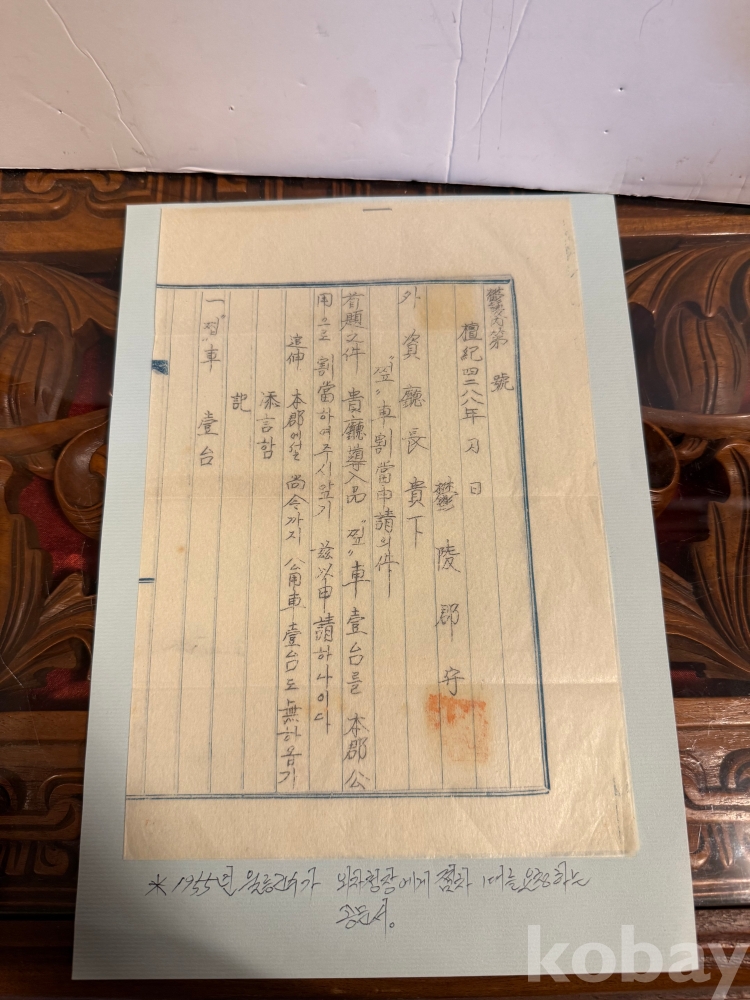 鬱內第 號
檀紀四二八八年 月 日
鬱陵郡守
外資廳長貴下
"찦"車割當申請의件
首題之件 貴廳導入品 "찦"車壹台를 本郡公
用으로 割當하여주시압기 玆以申請하나이다
追伸 本郡에선 尙今까지 公用車 壹台도 無하옵기
添言함
記
一 "찦"車 壹台
* 1955년 울릉군수가 외자청장에게 찦차 1대를 요청하는
공문서.
kobay